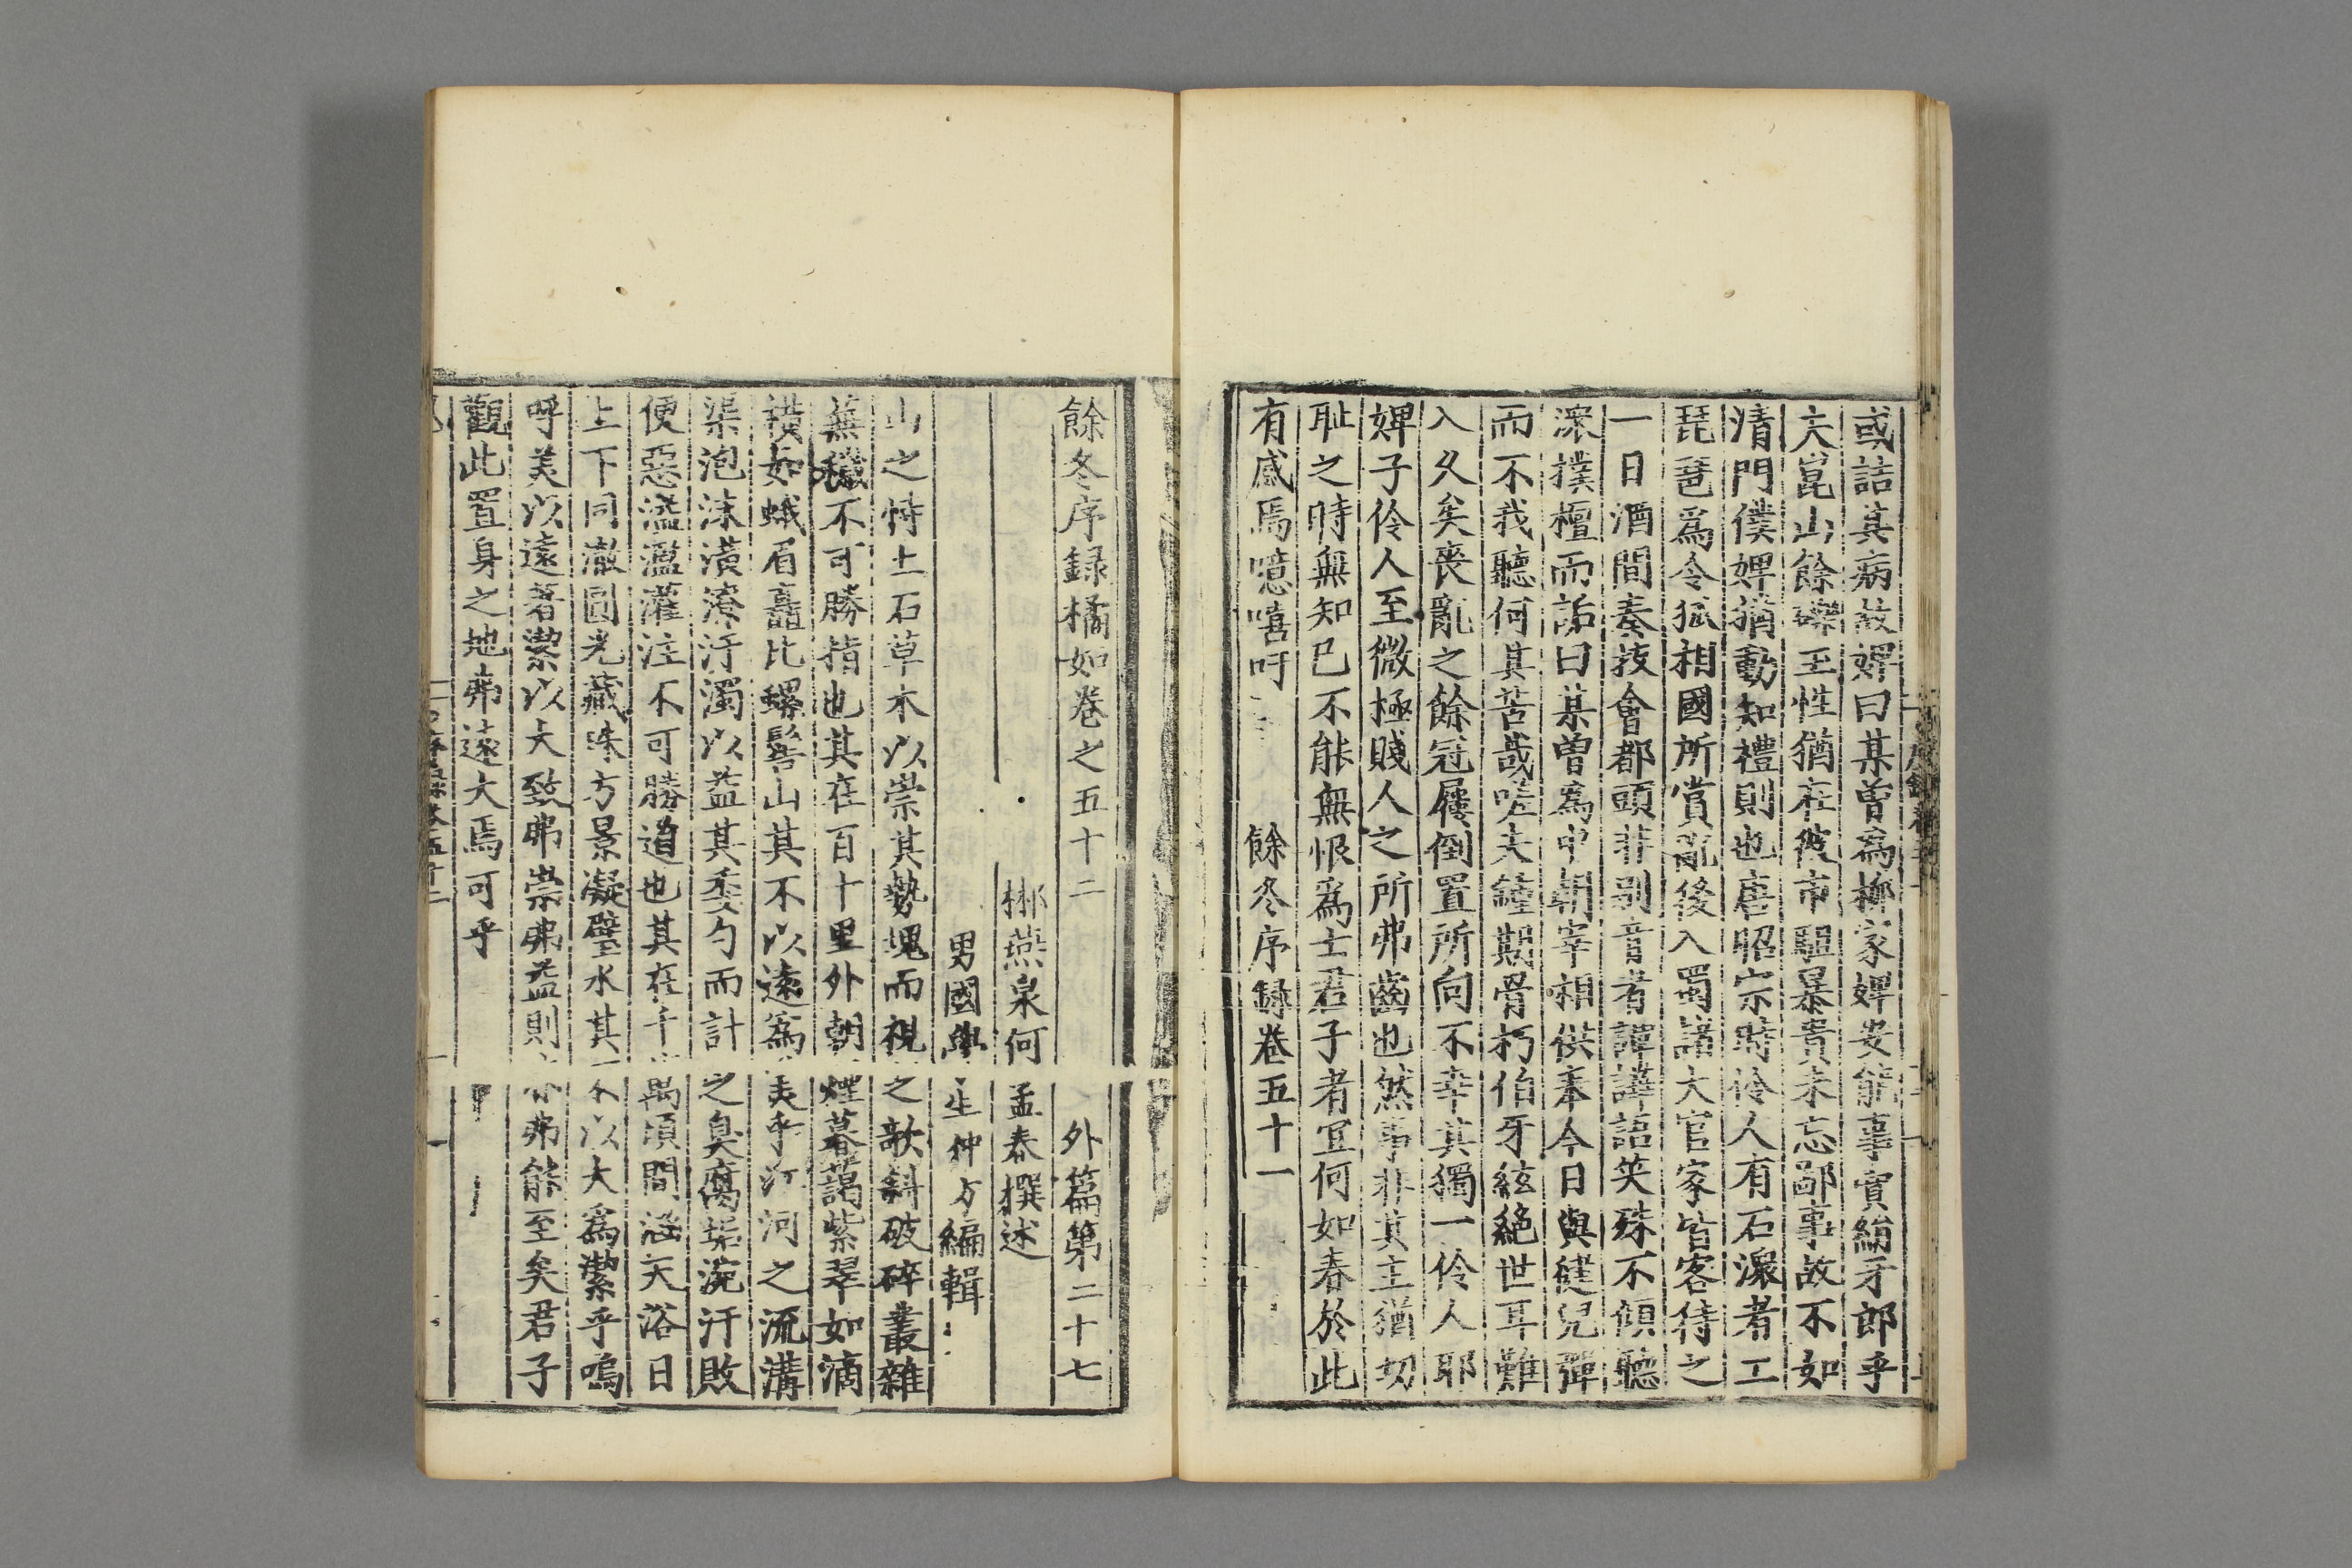 或詰其病故婢曰某曾爲柳家婢安能事賣絹牙郎乎
夫崑山餘礫玉性猶在彼市駔暴貴未忘鄙事故不如
清門僕婢猶動知禮則也唐昭宗時伶人有石潨者工
琵琶爲令狐相國所賞亂後入蜀諸大官家皆客待之
一日酒間奏技會都頭非别音者譚譁語笑殊不傾聽
潨撲檀而詬曰某曾爲中朝宰相供奉今日與健兒彈
而不我聽何其苦哉嗟夫鍾期骨朽伯牙絃絕世耳難
入久矣喪亂之餘冠屨倒置所向不幸其獨一伶人耶
婢子伶人至微極賤人之所弗齒也然事非其主猶切
恥之時無知已不能無恨爲士君子者宜何如春於此
有感焉噫嘻吁
餘冬序録卷五十一
餘冬序録橘如卷之五十二 外篇第二十七
郴燕泉何孟春撰述
男國學生仲方編輯
山之恃土石草木以崇其勢塊而視之欹斜破碎叢雜
蕪穢不可勝指也其在百十里外朝煙暮靄紫翠如滴
橫如蛾眉矗比螺髻山其不以遠爲美乎江河之流溝
渠泡沫潢潦汙濁以益其委勺而計之臭腐垢涴汙敗
便惡溢濫灌注不可勝道也其在千萬頃間涵天浴日
上下同澈圓光藏珠方景凝璧水其不以大爲潔乎嗚
呼美以遠著潔以大致弗崇弗益則弗能至矣君子
觀此置身之地弗遠大焉可乎